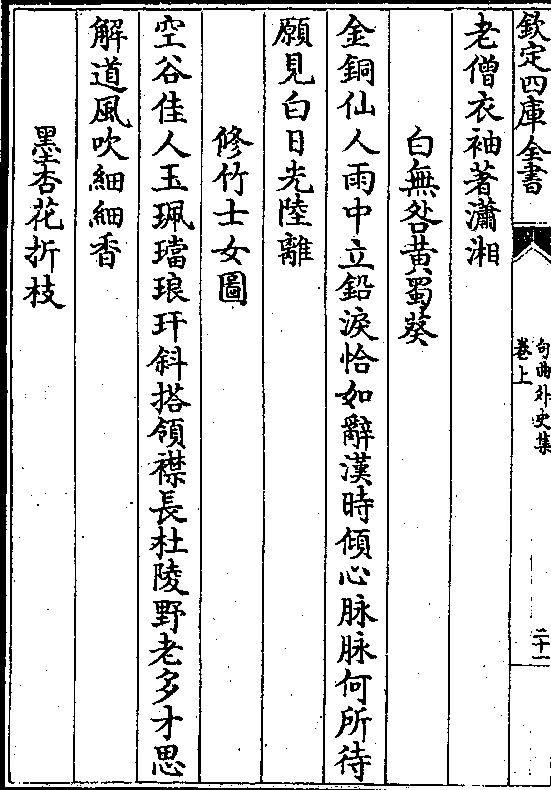 欽定四庫全書
句曲外史集
卷上
二十一
老僧衣袖著瀟湘
白無咎黃蜀葵
金銅仙人雨中立鉛淚恰如辭漢時傾心脉脉何所待
願見白日光陸離
修竹士女圖
空谷佳人玉珮璫琅玕斜搭領襟長杜陵野老多才思
解道風吹細細香
墨杏花折枝